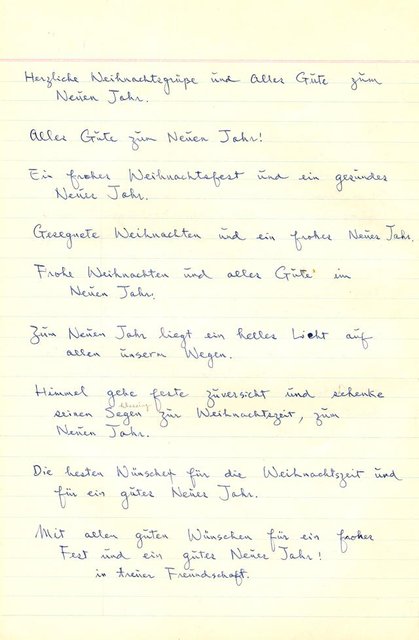 Herzliche Weihnachtsgrüße und Alles Gute zum
Neuen Jahr.
Alles Gute zum Neuen Jahr!
Ein frohes Weihnachtsfest und ein gesundes
Neues Jahr.
Gesegnete Weihnachten und ein frohes Neues Jahr.
Frohe Weihnachten und alles Gute im
Neuen Jahr.
Zum Neuen Jahr liegt ein helles Licht auf
allen unsern Wegen.
Himmel gebe feste zuversicht und schenke
blessing
seinen Segen zur Weihnachtszeit, zum
Neuen Jahr.
Die besten Wünsche für die Weihnachtszeit und
für ein gutes Neues Jahr.
Mit allen guten Wünschen für ein frohes
Fest und ein gutes Neues Jahr!
in treuer Freundschaft.